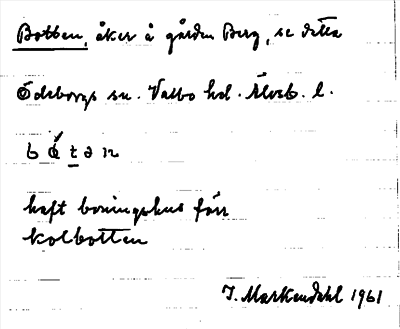 Botten, åker å gården Berg, se detta
Ödeborgs sn. Valbo hd. Älvsb. l.
haft boningshus förr
kolbotten
I. Markendahl 1961